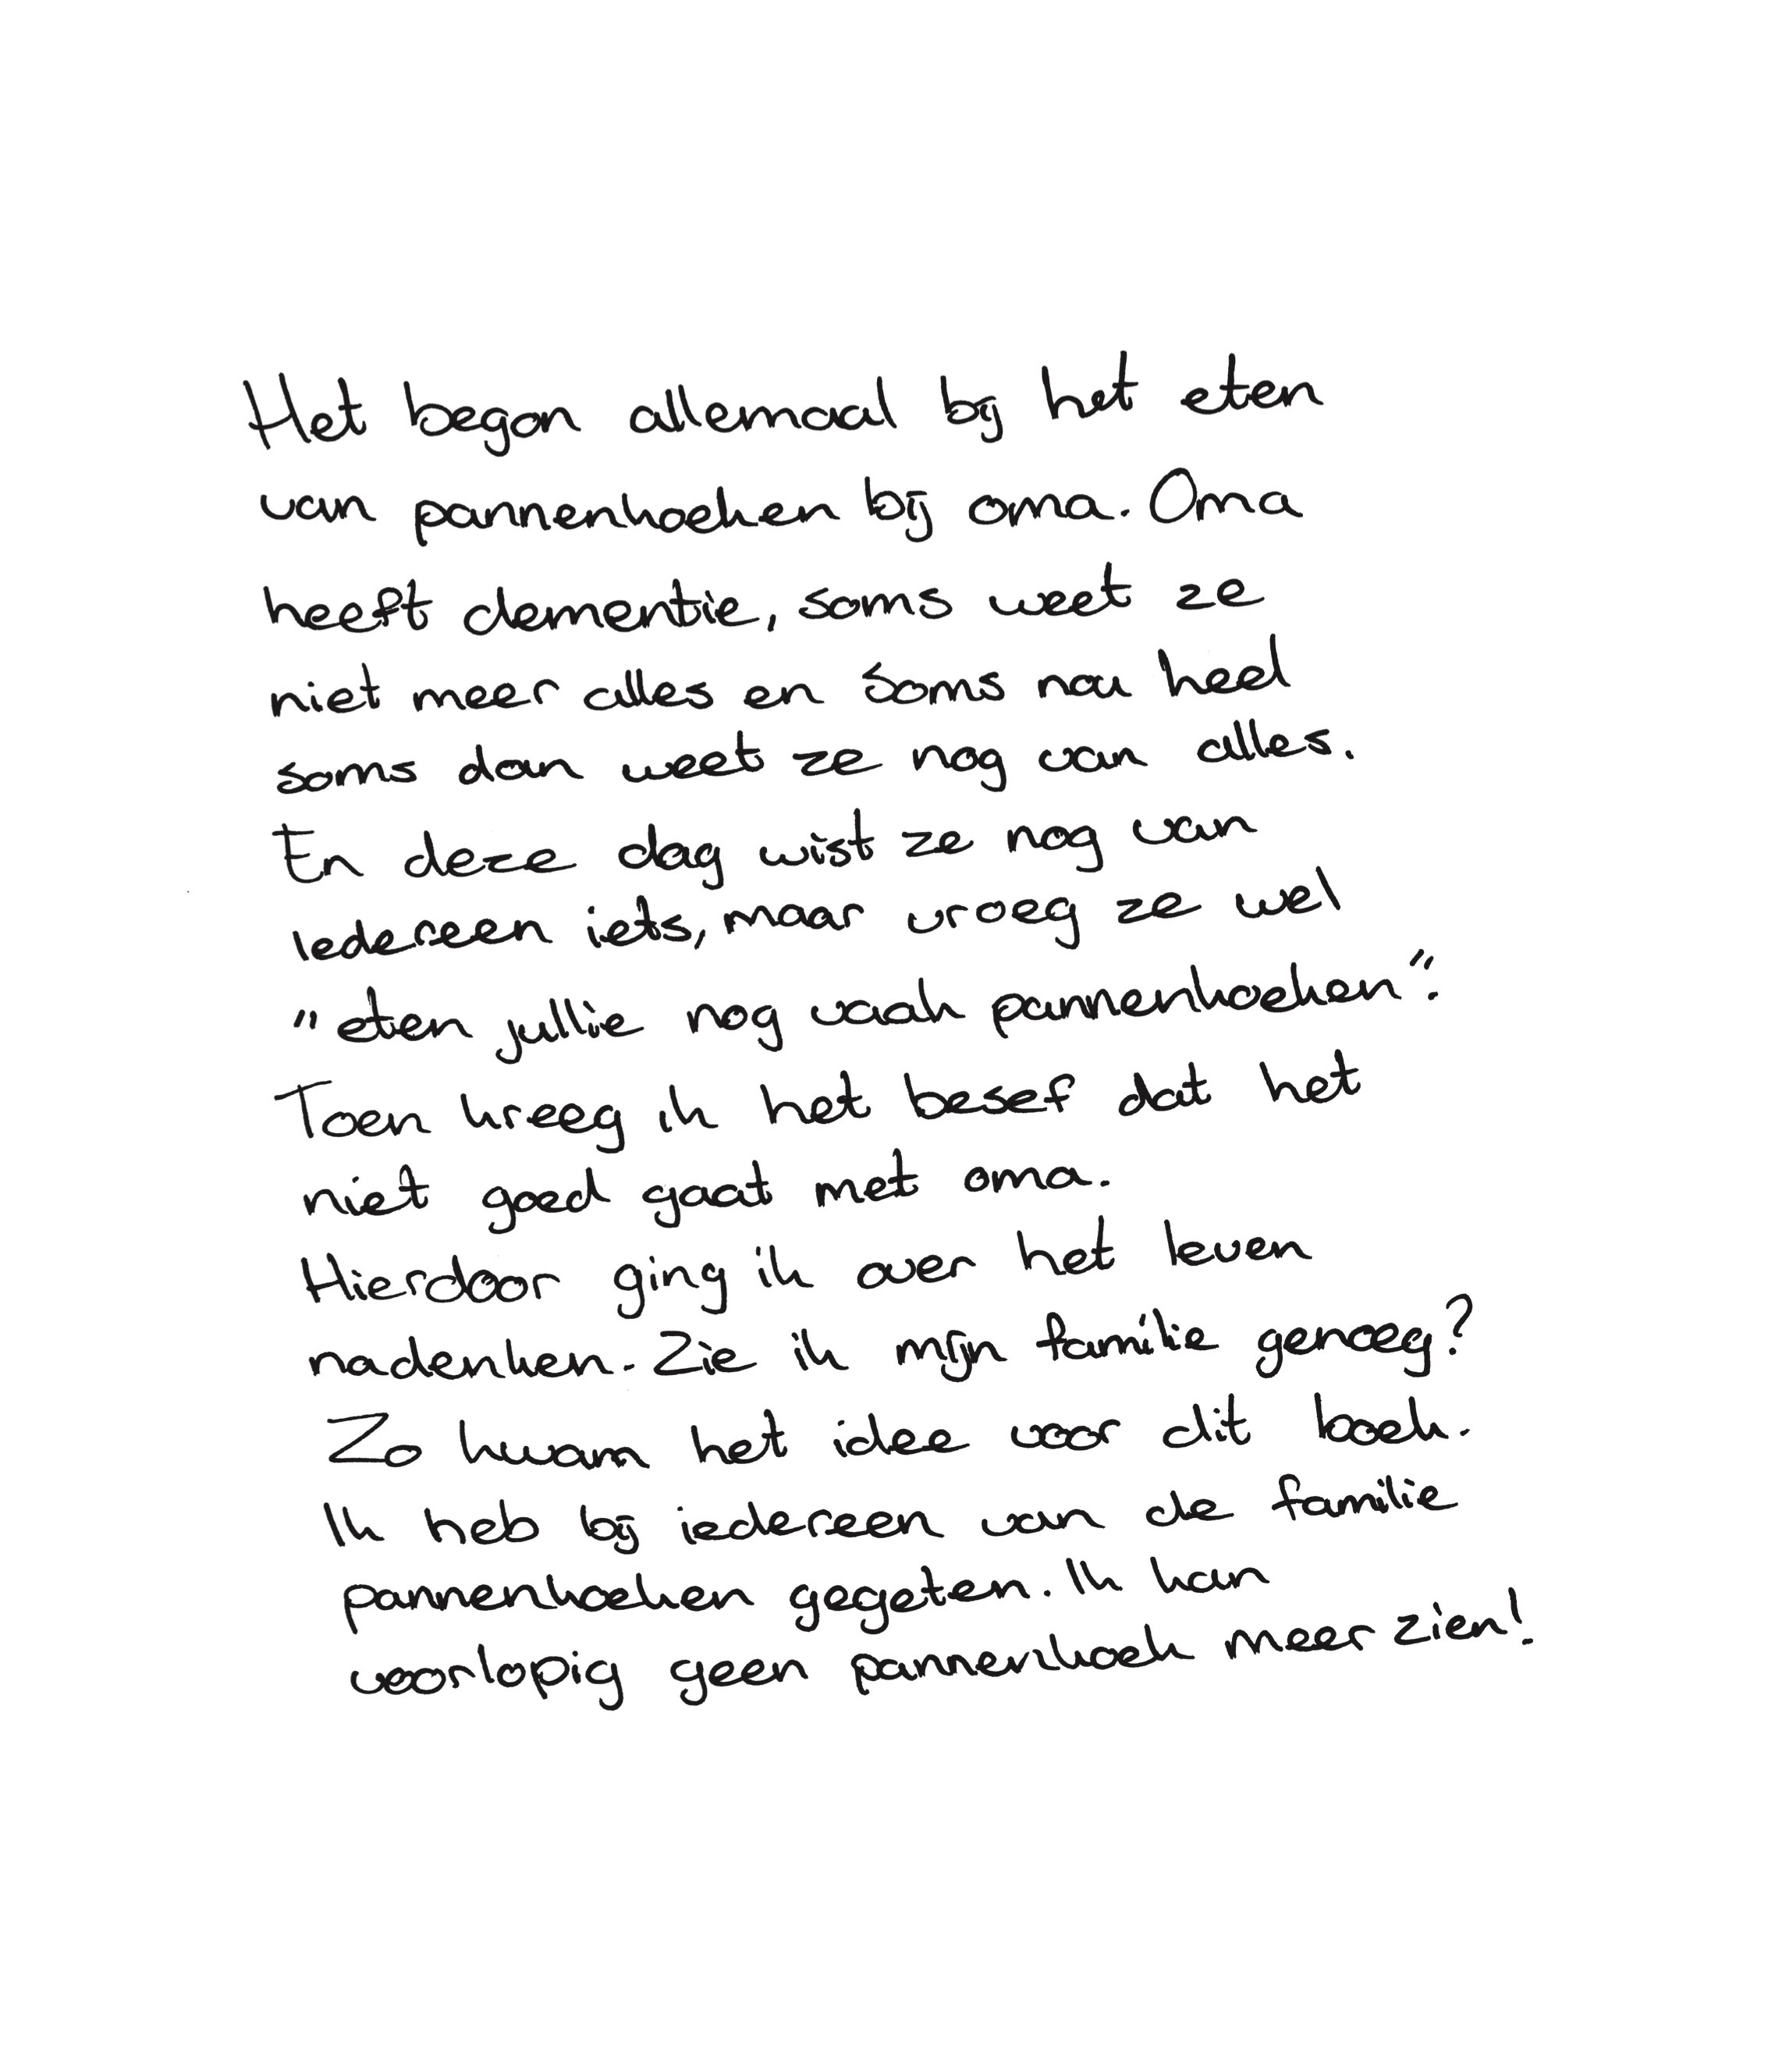 Het began allemaal bij het eten
van pannenkoeken bij oma. Oma
heeft dementie, soms weet ze
niet meer alles en soms nou heel
soms dan weet ze nog van alles.
En deze dag wist ze nog van
iedereen iets, maar vroeg ze wel
"eten jullie nog vaak pannenkoeken".
Toen kreeg ik het besef dat het
niet goed gaat met oma.
Hierdoor ging ik over het leven
nadenken. Zie ik mijn familie genoeg?
Zo kwam het idee voor dit boek.
Ik heb bij iedereen van de familie
pannenkoeken gegeten. Ik kan
voorlopig geen pannenkoek meer zien!